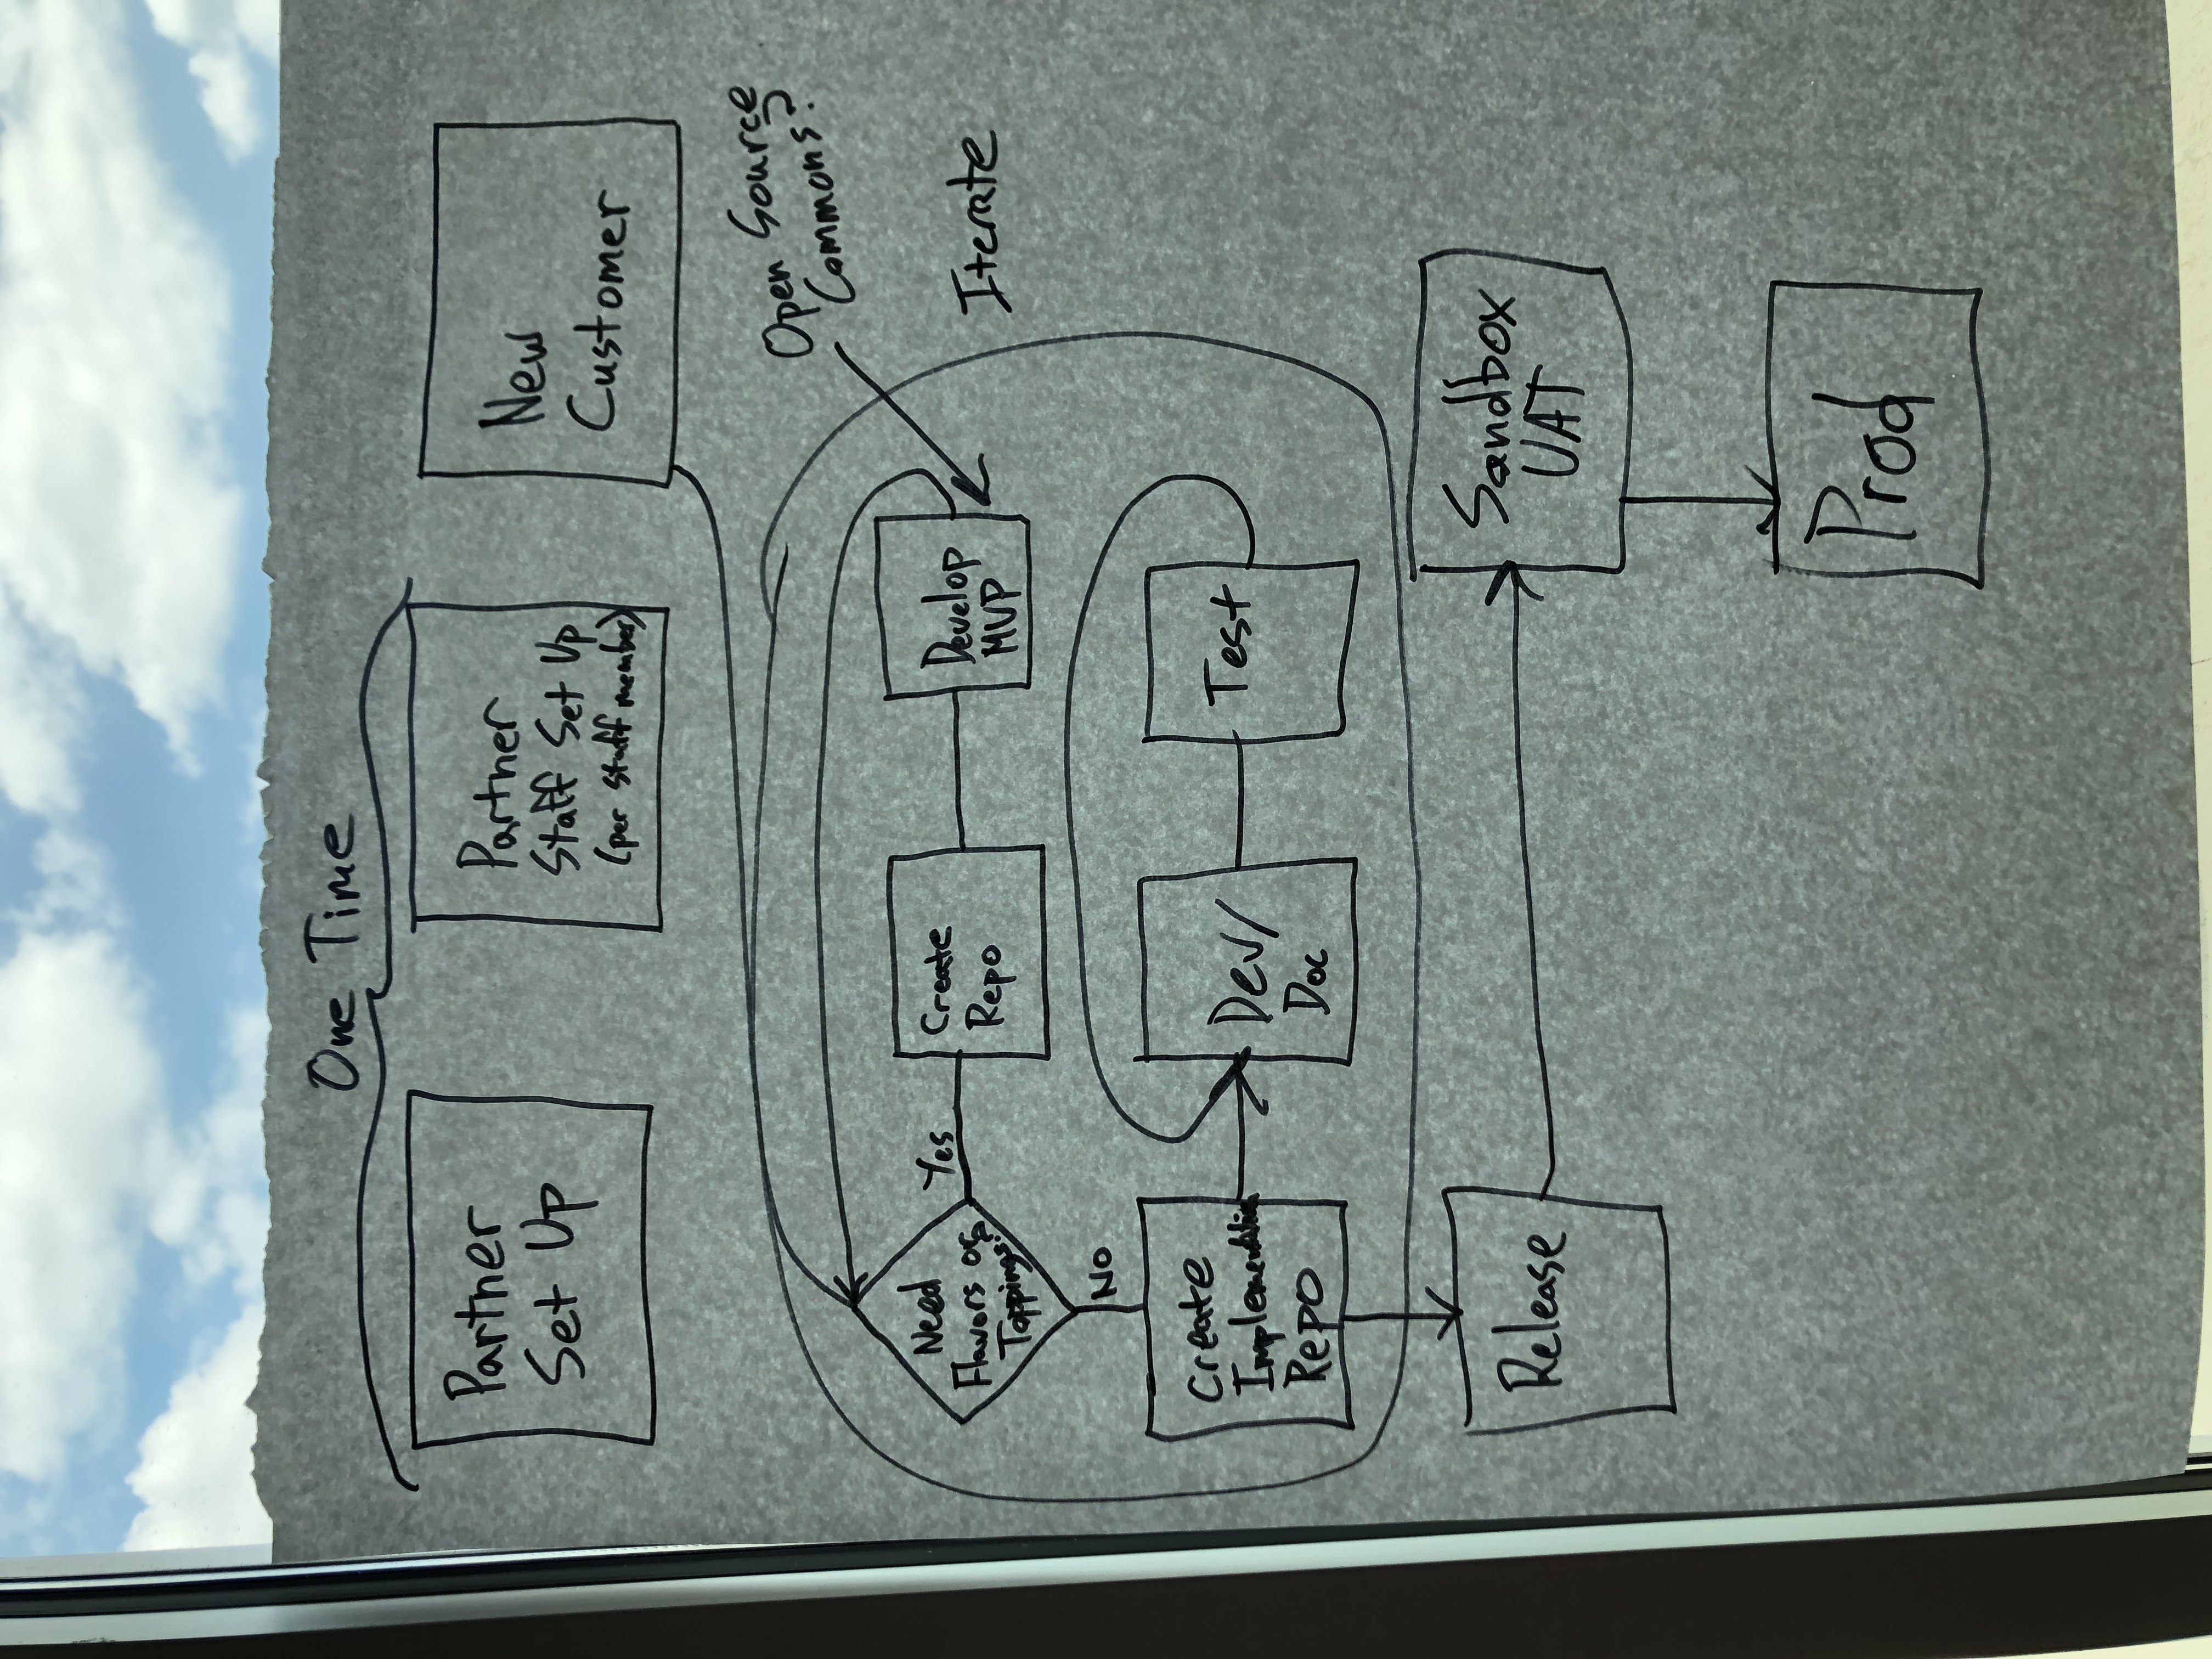 One Time
Partner
Set Up
Partner
Staff Set Up
(per staff member)
New
Customer
Open Source
Commons?
Need
Flavors or
Toppings?
Yes
Create
Repo
Develop
MVP
Iterate
No
Create
Implementation
Repo
Dev/
Doc
Test
Release
Sandbox
UAT
Prod